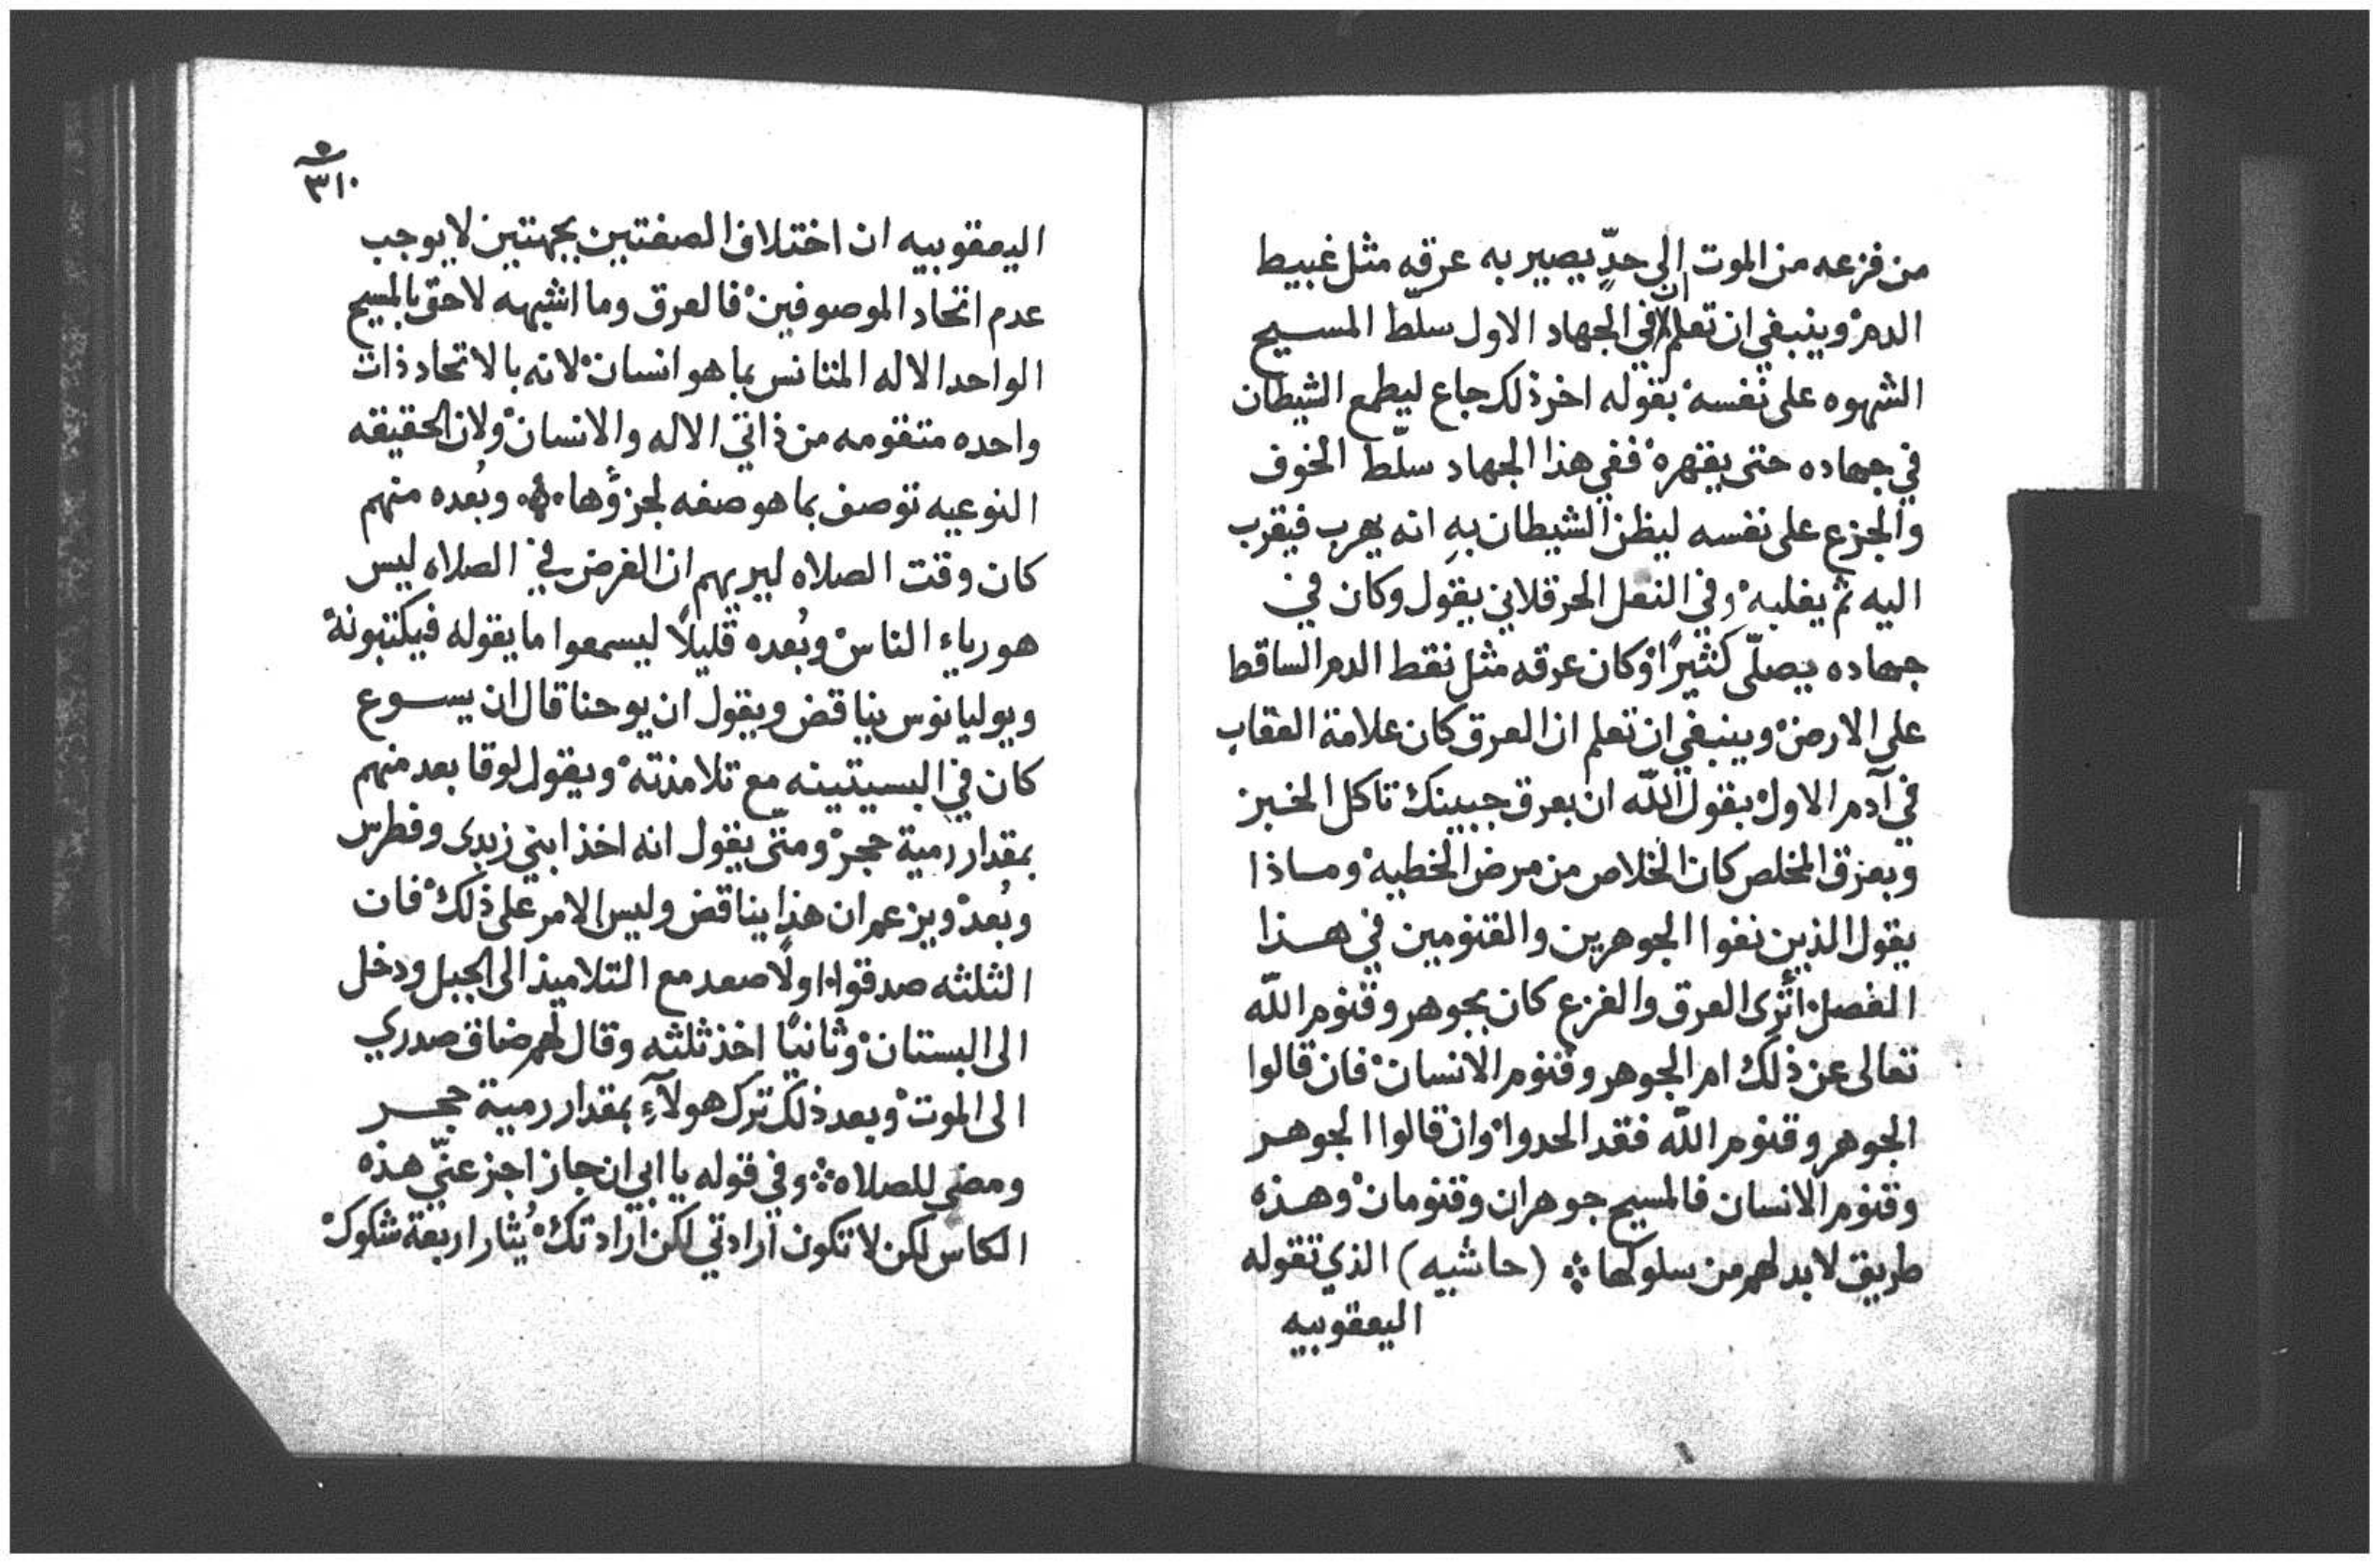 من فزعه من الموت الى حدٍّ يصير به عرقه مثل غبيط
الدم وينبغي ان تعلم ان في الجهاد الاول سلّط المسيح
الشهوه على نفسه بقوله اخر ذلك جاع ليطمع الشيطان
في جهاده حتى يقهره ففي هذا الجهاد سلّط الخوف
والجزع على نفسه ليظن الشيطان به انه يهرب فيقرب
اليه ثم يغلبه وفي النقل الحرقلاني يقول وكان في
جهاده يصلّى كثيرًا وكان عرقه مثل نقط الدم الساقط
على الارض وينبغي ان تعلم ان العرق كان علامة العقاب
في آدم الاول بقول اللّه ان بعرق جبينك تاكل الخبز
وبعرق المخلص كان الخلاص من مرض الخطيه وماذا
يقول الذين نفوا الجوهرين والقنومين في هذا
الفصل أترى العرق والفزع كان بجوهر وقنوم اللّه
تعالى عن ذلك ام الجوهر وقنوم الانسان فان قالوا
الجوهر وقنوم اللّه فقد الحدوا وان قالوا الجوهر
وقنوم الانسان فالمسيح جوهران وقنومان وهذه
طريق لا بد لهم من سلوكها (حاشيه) الذي تقوله
اليعقوبيه
٥
٣١٠
اليعقوبيه ان اختلاف الصفتين بجهتين لا يوجب
عدم اتحاد الموصوفين فالعرق وما اشبهه لاحق بالمسيح
الواحد الاله المتانس بما هو انسان لانه بالاتحاد ذات
واحده متقومه من ذاتي الاله والانسان ولان الحقيقه
النوعيه توصف بما هو صفه لجزؤها وبُعده منهم
كان وقت الصلاه ليريهم ان الغرض في الصلاه ليس
هو رياء الناس وبُعده قليلًا ليسمعوا ما يقوله فيكتبونه
ويوليانوس يناقض ويقول ان يوحنا قال ان يسوع
كان في البسيتينه مع تلامذته ويقول لوقا بعد منهم
بمقدار رمية حجر ومتّى يقول انه اخذ ابني زبدى وفطرس
وبُعد ويزعم ان هذا يناقض وليس الامر على ذلك فان
الثلثه صدقوا اولًا صعد مع التلاميذ الى الجبل ودخل
الى البستان وثانيًا اخذ ثلثه وقال لهم ضاق صدري
الى الموت وبعد ذلك ترك هولآءِ بمقدار رمية حجر
ومضى للصلاه وفي قوله يا ابي ان جاز اجز عنّي هذه
الكاس لكن لا تكون ارادتي لكن ارادتك يُثار اربعة شكوك